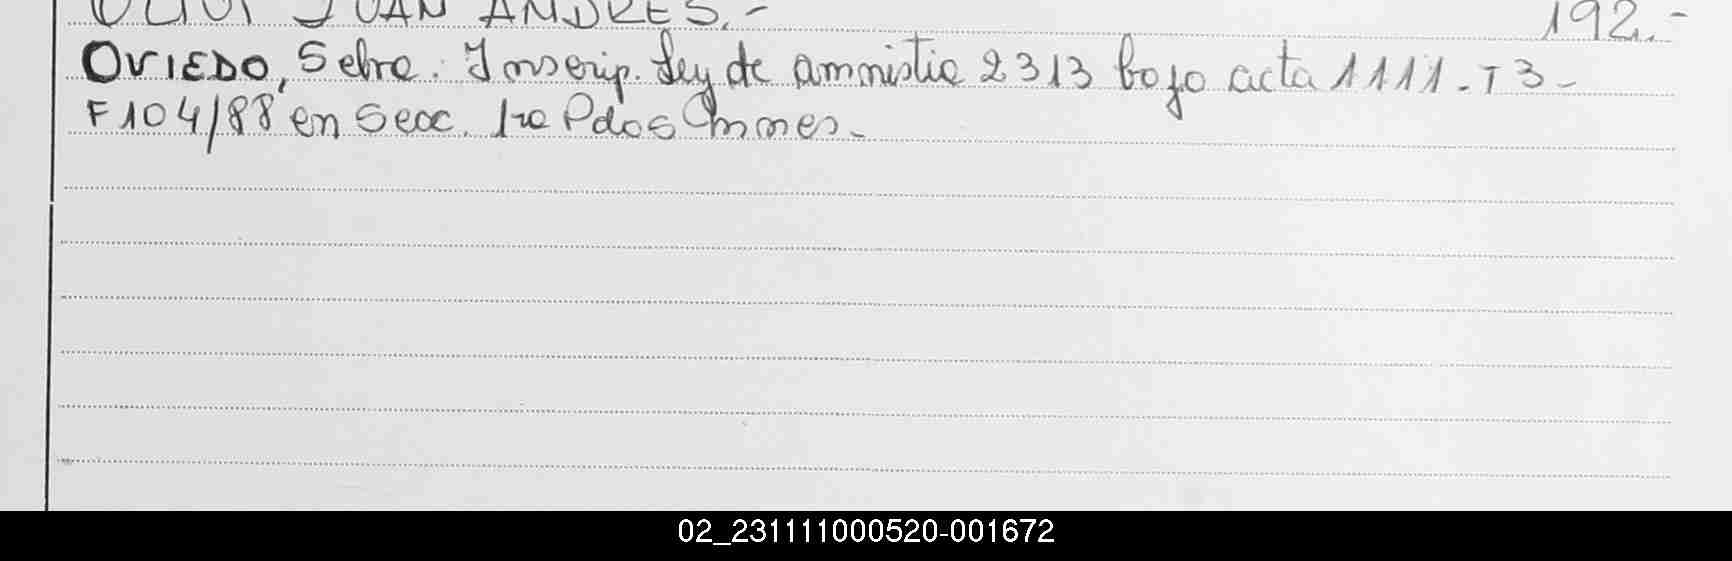 OLIVI JUAN ANDRES.- 192.-
OVIEDO, Sebra. Inscrip. Ley de amnistia 2313 bajo acta 1111 - T3 -
F104/88 en Secc. 1ra Pdos
02_231111000520-001672